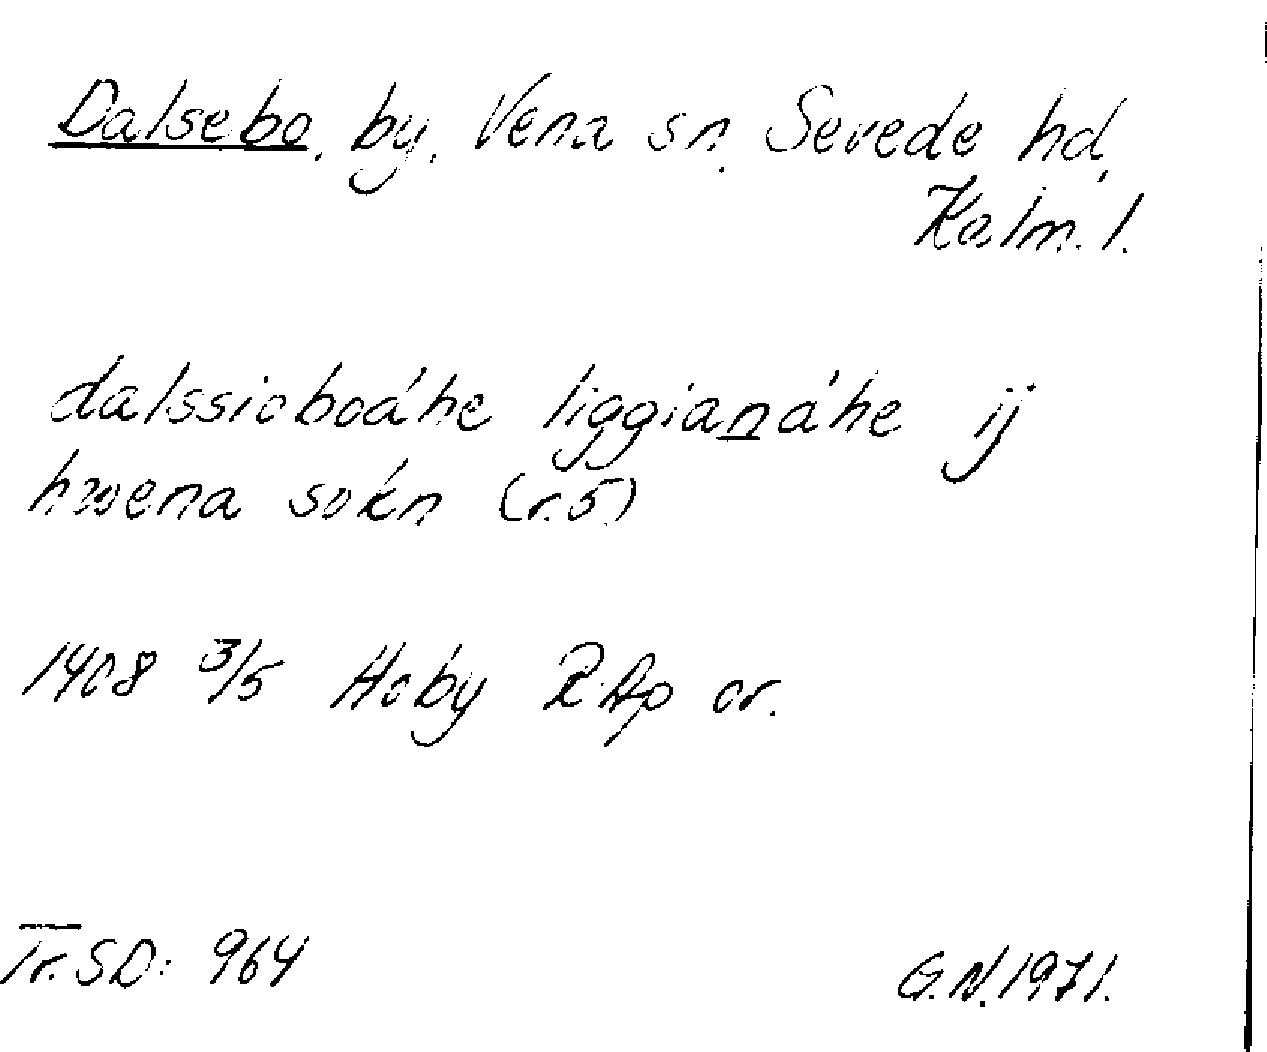 Dalsebo, by, Vena sn, Sevede hd,
Kalm. l.
dalssioboáhe liggianáhe ij
hwena sokn (r.5)
1408 3/5 Hoby RAp or.
Tr. SD: 964
G.N. 1971.